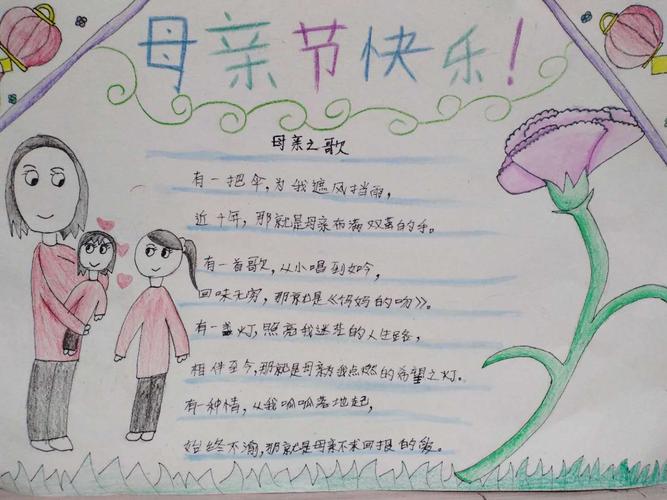 母亲节快乐!
母亲之歌
有一把伞,为我遮风挡雨,
近十年,那就是母亲布满双茧的手。
有一首歌,从小唱到如今,
回味无穷,那就是《妈妈的吻》。
有一盏灯,照亮我迷茫的人生路,
相伴至今,那就是母亲为我点燃的希望之灯。
有一种情,从我呱呱落地起,
始终不渝,那就是母亲不求回报的爱。